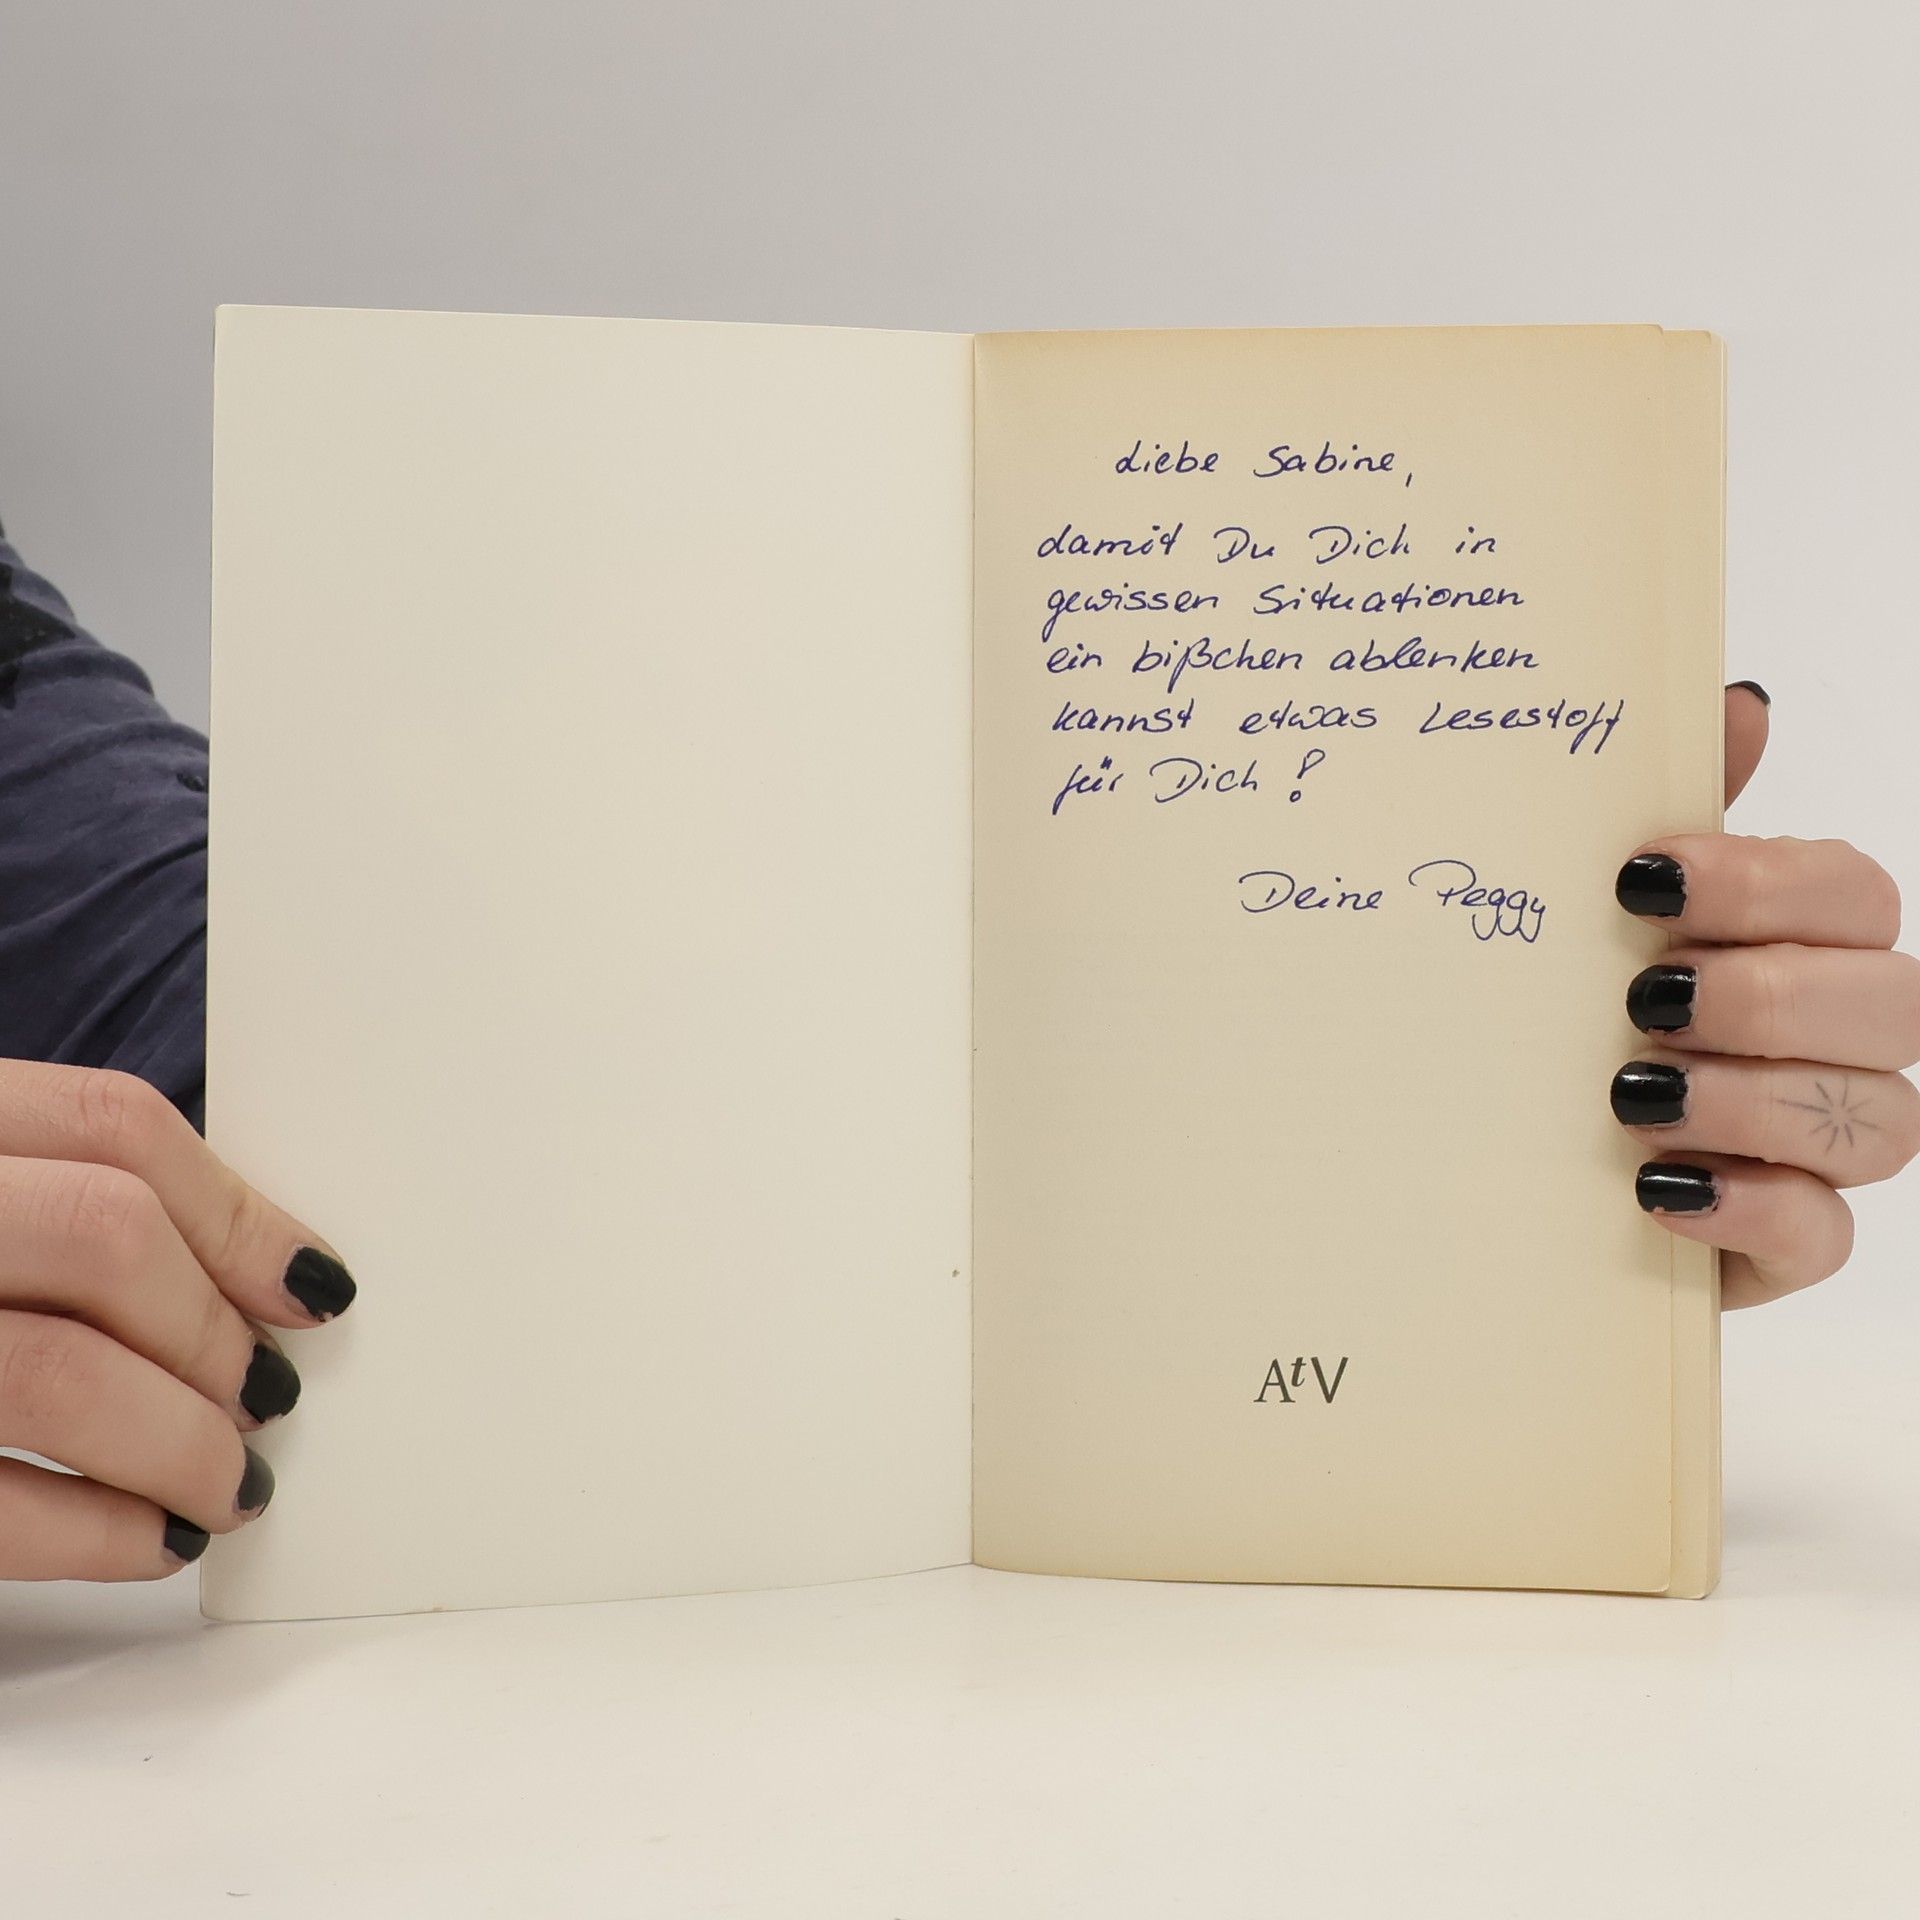 Liebe Sabine,
damit Du Dich in
gewissen Situationen
ein bißchen ablenken
kannst etwas Lesestoff
für Dich!
Deine Peggy
AtV